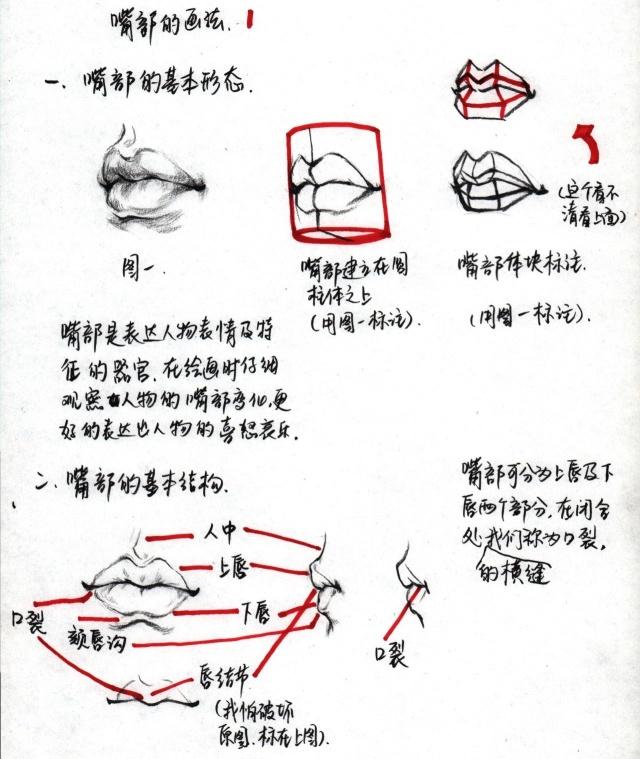 嘴部的画法. 1
一、嘴部的基本形态.
(这个看不
清看上面)
图一.
嘴部建立在圆
柱体之上
(用图一标注).
嘴部体块标法.
(用图一标注).
嘴部是表达人物表情及特
征的器官.在绘画时仔细
观察人物的嘴部变化,更
好的表达出人物的喜怒哀乐.
二、嘴部的基本结构.
嘴部可分为上唇及下
唇两个部分,在闭合
处我们称为口裂.
的横缝
人中
上唇
口裂
下唇
颏唇沟
口裂
唇结节
(我怕破坏
原图,标在上图).